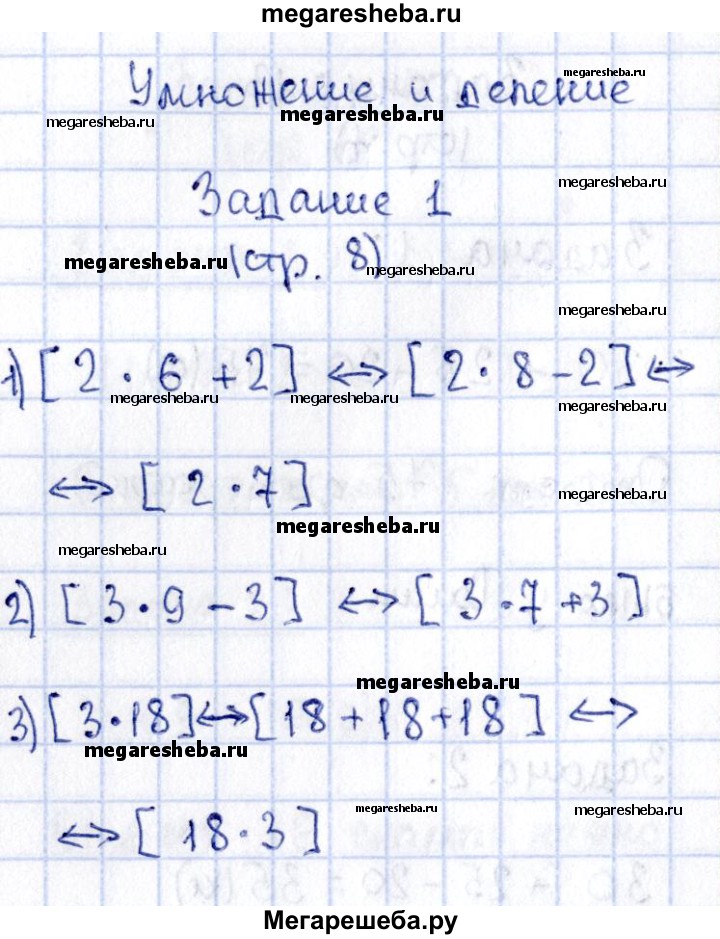 megaresheba.ru
Умножение и деление
megaresheba.ru
megaresheba.ru
megaresheba.ru
Задание 1
megaresheba.ru
megaresheba.ru
(стр. 8)
megaresheba.ru
1) [2 · 6 + 2] ⟷ [2 · 8 - 2] ⟷
megaresheba.ru
megaresheba.ru
megaresheba.ru
⟷ [2 · 7]
megaresheba.ru
megaresheba.ru
megaresheba.ru
2) [3 · 9 - 3] ⟷ [3 · 7 + 3]
megaresheba.ru
3) [3 · 18] ⟷ [18 + 18 + 18] ⟷
megaresheba.ru
megaresheba.ru
megaresheba.ru
⟷ [18 · 3]
Мегарешеба.ру